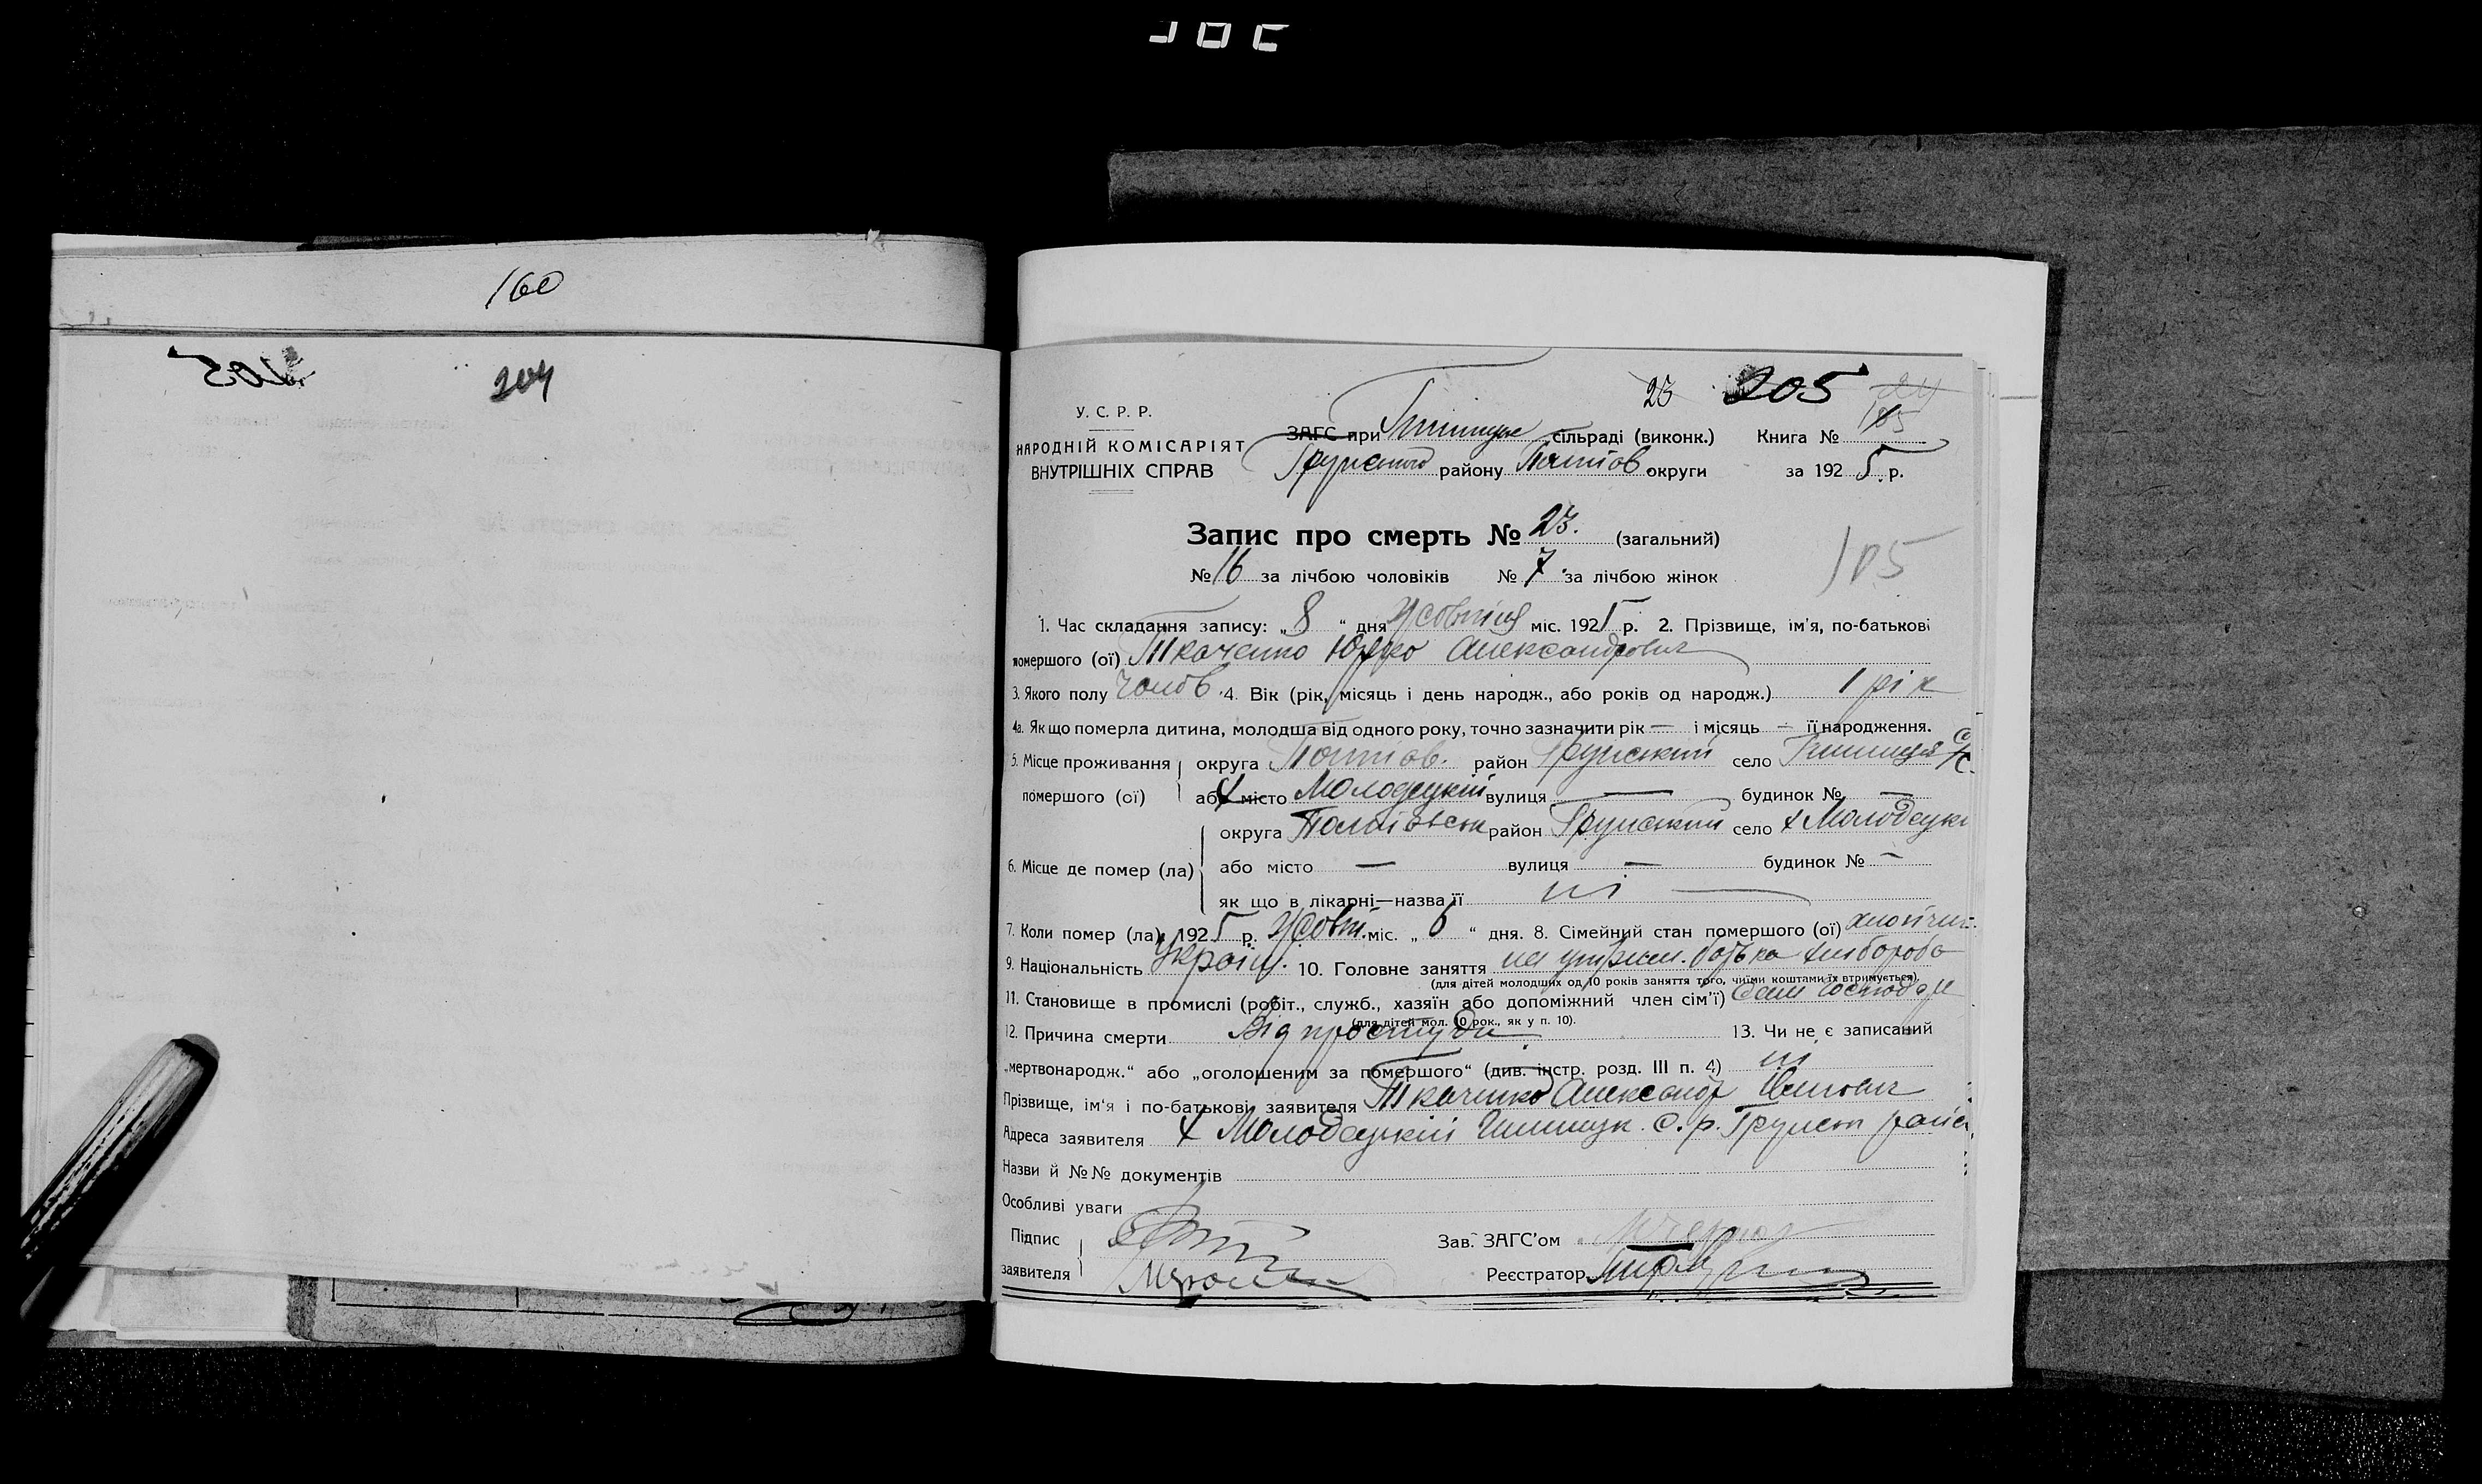 160
204
23 205
У. С. Р. Р.
НАРОДНІЙ КОМІСАРІЯТ
ВНУТРІШНІХ СПРАВ
ЗАГС при сільраді (виконк.) Книга № 105
Грунського району Полтав округи за 1925 р.
Запис про смерть № 23. (загальний)
№ 16 за лічбою чоловіків № 7 за лічбою жінок
105
1. Час складання запису: „8“ дня Жовтня міс. 1925 р. 2. Прізвище, ім'я, по-батькові
помершого (ої) Ткаченко Юрко Александрович
3. Якого полу Чолов. 4. Вік (рік, місяць і день народж., або років од народж.) 1 рік
4а. Як що померла дитина, молодша від одного року, точно зазначити рік — і місяць — її народження.
5. Місце проживання округа Полтав. район Грунський село с/с.
помершого (ої) або місто х Молодецкій вулиця — будинок № —
округа Полтавськ район Грунський село х Молодецкі
6. Місце де помер (ла) або місто — вулиця — будинок № —
як що в лікарні—назва її ні —
7. Коли помер (ла) 1925 р. Жовт. міс. „6“ дня. 8. Сімейний стан помершого (ої)
9. Національність Україн. 10. Головне заняття на утрим. батька хлібороба
(для дітей молодших од 10 років заняття того, чиїми коштами їх втримується).
11. Становище в промислі (робіт., служб., хазяїн або допоміжний член сім'ї)
(для дітей мол. 10 рок., як у п. 10).
12. Причина смерти Від простуди 13. Чи не є записаний
„мертвонародж.“ або „оголошеним за помершого“ (див. інстр. розд. III п. 4) ні
Прізвище, ім'я і по-батькові заявителя Ткаченко Александр
Адреса заявителя х Молодецький С. р. Грунськ район
Назви й №№ документів
Особливі уваги
Підпис Зав. ЗАГС'ом
заявителя Реєстратор